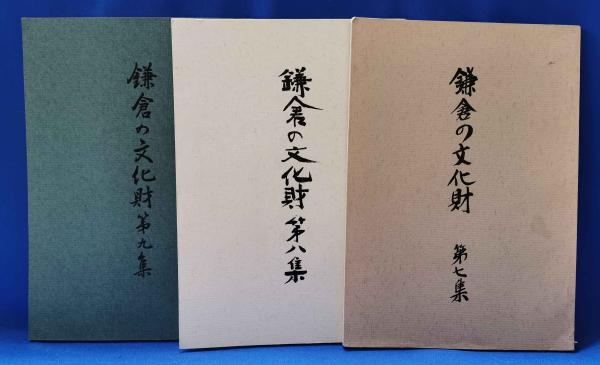 鎌倉の文化財
第七集
鎌倉の文化財 第八集
鎌倉の文化財 第九集